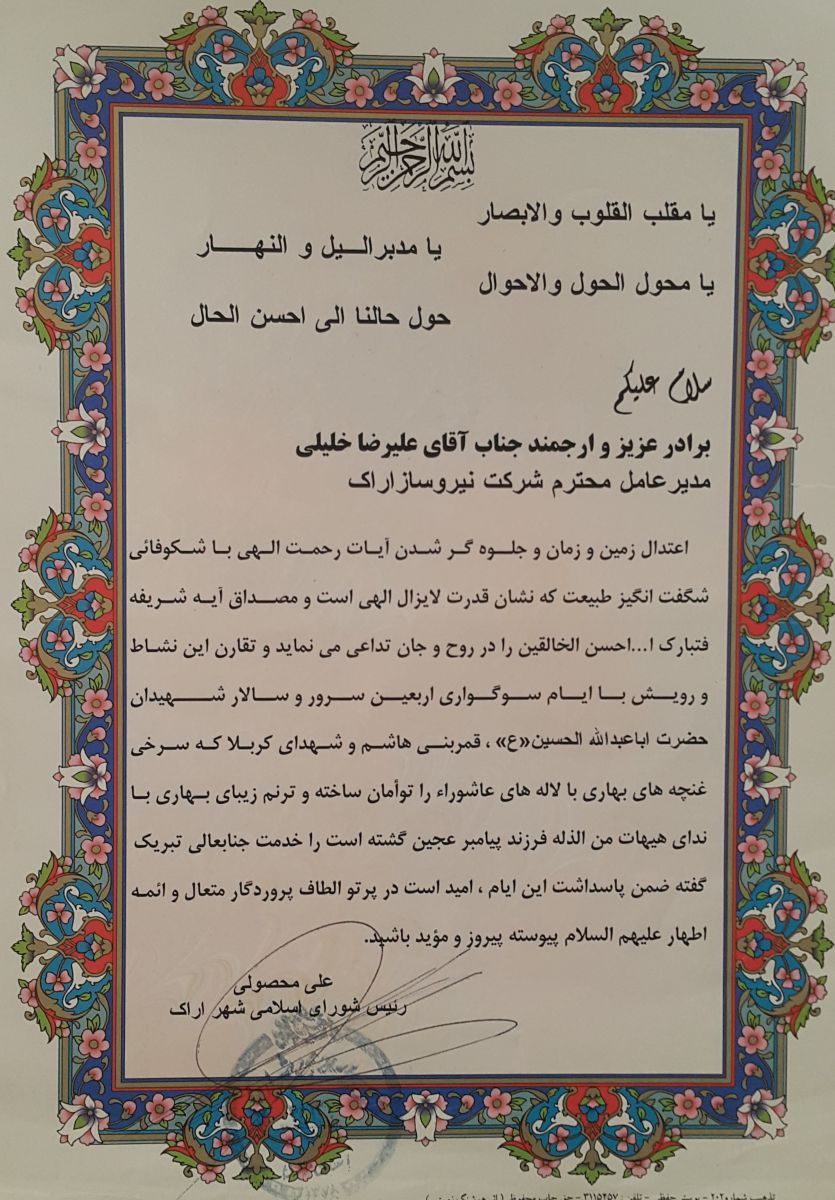 بسم الله الرحمن الرحیم
یا مقلب القلوب والابصار
یا مدبرالـیل و النهـار
یا محول الحول والاحوال
حول حالنا الی احسن الحال
سلام علیکم
برادر عزیز و ارجمند جناب آقای علیرضا خلیلی
مدیرعامل محترم شرکت نیروسازاراک
اعتدال زمین و زمان و جلوه گر شدن آیات رحمت الهی با شکوفائی
شگفت انگیز طبیعت که نشان قدرت لایزال الهی است و مصداق آیه شریفه
فتبارک ا...احسن الخالقین را در روح و جان تداعی می نماید و تقارن این نشاط
و رویش با ایام سوگواری اربعین سرور و سالار شهیدان
حضرت اباعبدالله الحسین«ع» ، قمربنی هاشم و شهدای کربلا که سرخی
غنچه های بهاری با لاله های عاشوراء را توأمان ساخته و ترنم زیبای بهاری با
ندای هیهات من الذله فرزند پیامبر عجین گشته است را خدمت جنابعالی تبریک
گفته ضمن پاسداشت این ایام ، امید است در پرتو الطاف پروردگار متعال و ائمه
اطهار علیهم السلام پیوسته پیروز و مؤید باشید.
علی محصولی
رئیس شورای اسلامی شهر اراک